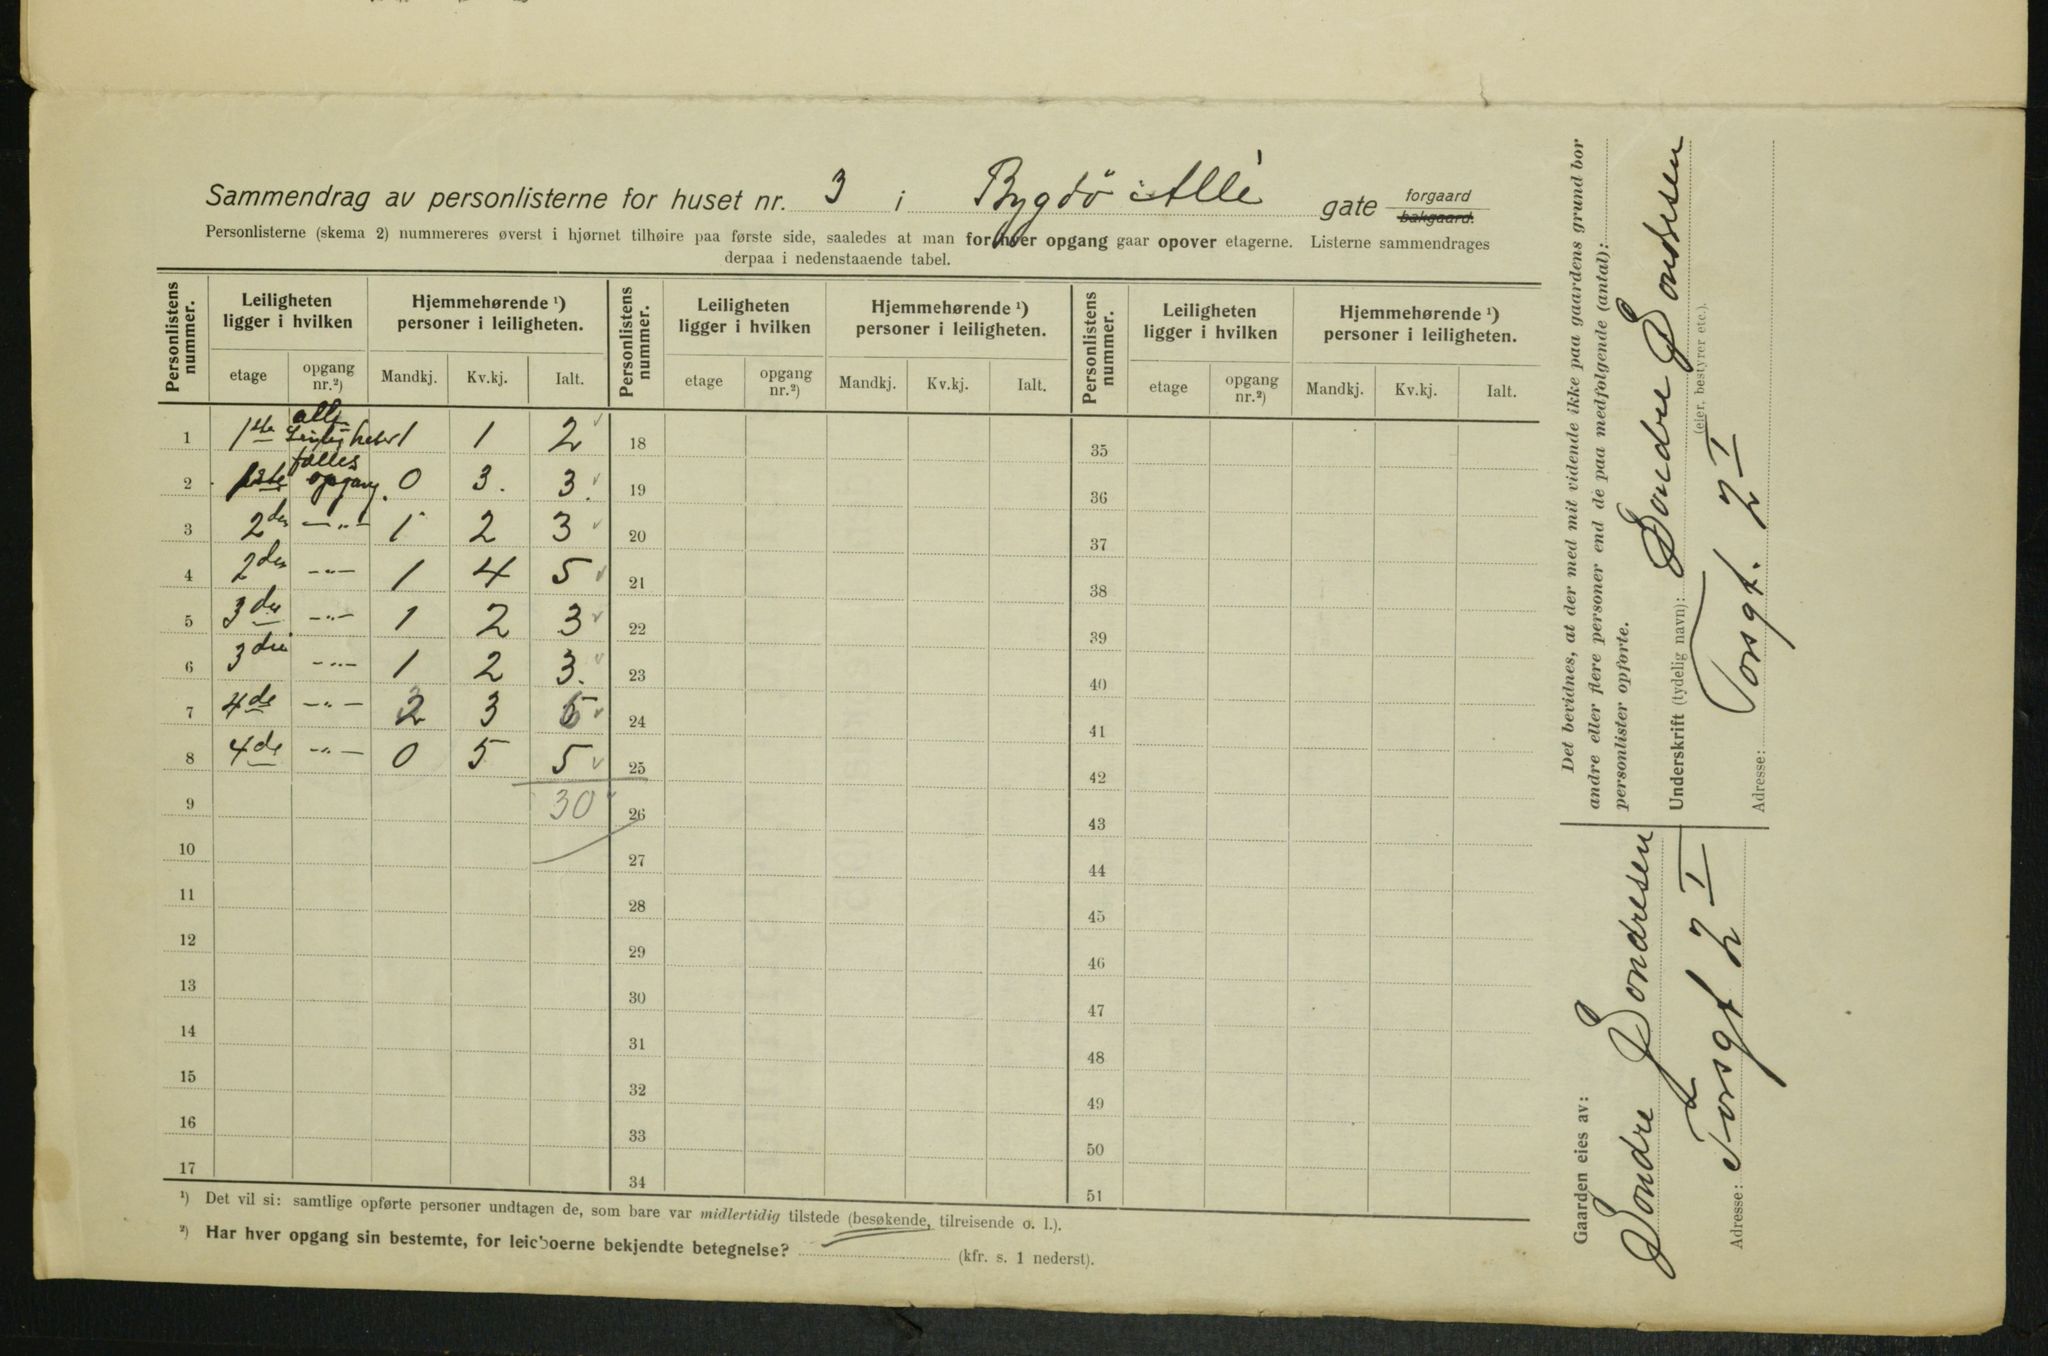 Sammendrag av personlisterne for huset nr. 3 i Bygdö Allé gate forgaard bakgaard.
Personlisterne (skema 2) nummereres øverst i hjørnet tilhøire paa første side, saaledes at man for hver opgang gaar opover etagerne. Listerne sammendrages
derpaa i nedenstaaende tabel.
Personlistens nummer. Leiligheten ligger i hvilken Hjemmehørende ¹) personer i leiligheten. Personlistens nummer. Leiligheten ligger i hvilken Hjemmehørende ¹) personer i leiligheten. Personlistens nummer. Leiligheten ligger i hvilken Hjemmehørende ¹) personer i leiligheten.
etage opgang nr.²) Mandkj. Kv.kj. Ialt. etage opgang nr.²) Mandkj. Kv.kj. Ialt. etage opgang nr.²) Mandkj. Kv.kj. Ialt.
1 1ste alle Leiligheter 1 1 2 18 35
2 1ste fælles opgang. 0 3. 3. 19 36
3 2den —"— 1 2 3 20 37
4 2den —"— 1 4 5 21 38
5 3die —"— 1 2 3 22 39
6 3die —"— 1 2 3. 23 40
7 4de —"— 3 24 41
8 4de —"— 0 5 5 25 42
9 30 26 43
10 27 44
11 28 45
12 29 46
13 30 47
14 31 48
15 32 49
16 33 50
17 34 51
¹) Det vil si: samtlige opførte personer undtagen de, som bare var midlertidig tilstede (besøkende, tilreisende o. l.).
²) Har hver opgang sin bestemte, for leieboerne bekjendte betegnelse? (kfr. s. 1 nederst).
Det bevidnes, at der med mit vidende ikke paa gaardens grund bor
andre eller flere personer end de paa medfølgende (antal):
personlister opførte.
Underskrift (tydelig navn): Sondre Sondresen
(eier, bestyrer etc.).
Adresse: Torsgt. 2 I
Gaarden eies av:
Sondre Sondresen
Adresse: Torsgt 2 I